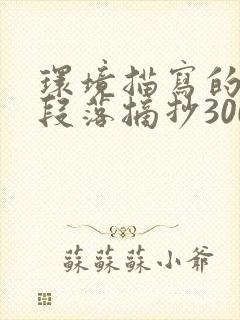 環境描寫的
段落摘抄300
蘇蘇蘇小爺